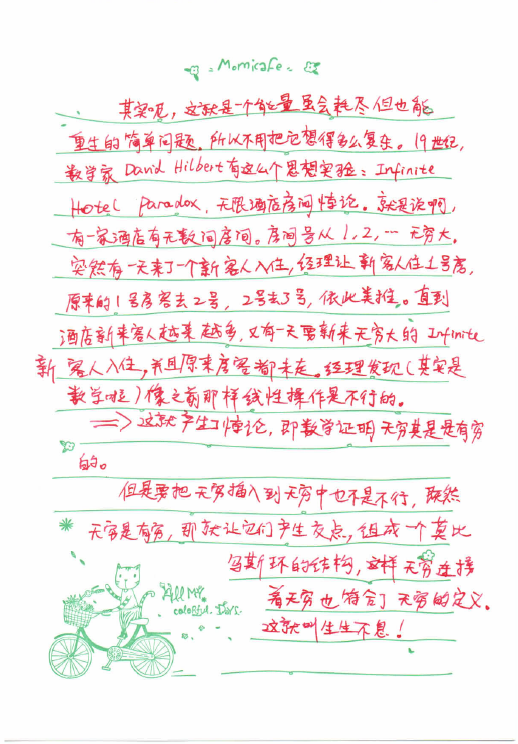 Momicafe
其实呢，这就是一个能量虽会耗尽但也能
重生的简单问题。所以不用把它想得多么复杂。19世纪，
数学家 David Hilbert 有这么个思想实验：Infinite
Hotel Paradox，无限酒店房间悖论。就是说啊，
有一家酒店有无数间房间。房间号从1，2，… 无穷大。
突然有一天来了一个新客人入住，经理让新客人住1号房，
原来的1号房客去2号，2号去3号，依此类推。直到
酒店新来客人越来越多，又有一天要新来无穷大的Infinite
新客人入住，并且原来房客都未走。经理发现（其实是
数学啦）像之前那样线性操作是不行的。
=> 这就产生了悖论，即数学证明无穷其是是有穷
的。
但是要把无穷插入到无穷中也不是不行，既然
无穷是有穷，那就让它们产生交点，组成一个莫比
乌斯环的结构，这样无穷连接
着无穷也符合了无穷的定义。
这就叫生生不息！
All My
colorful Days.